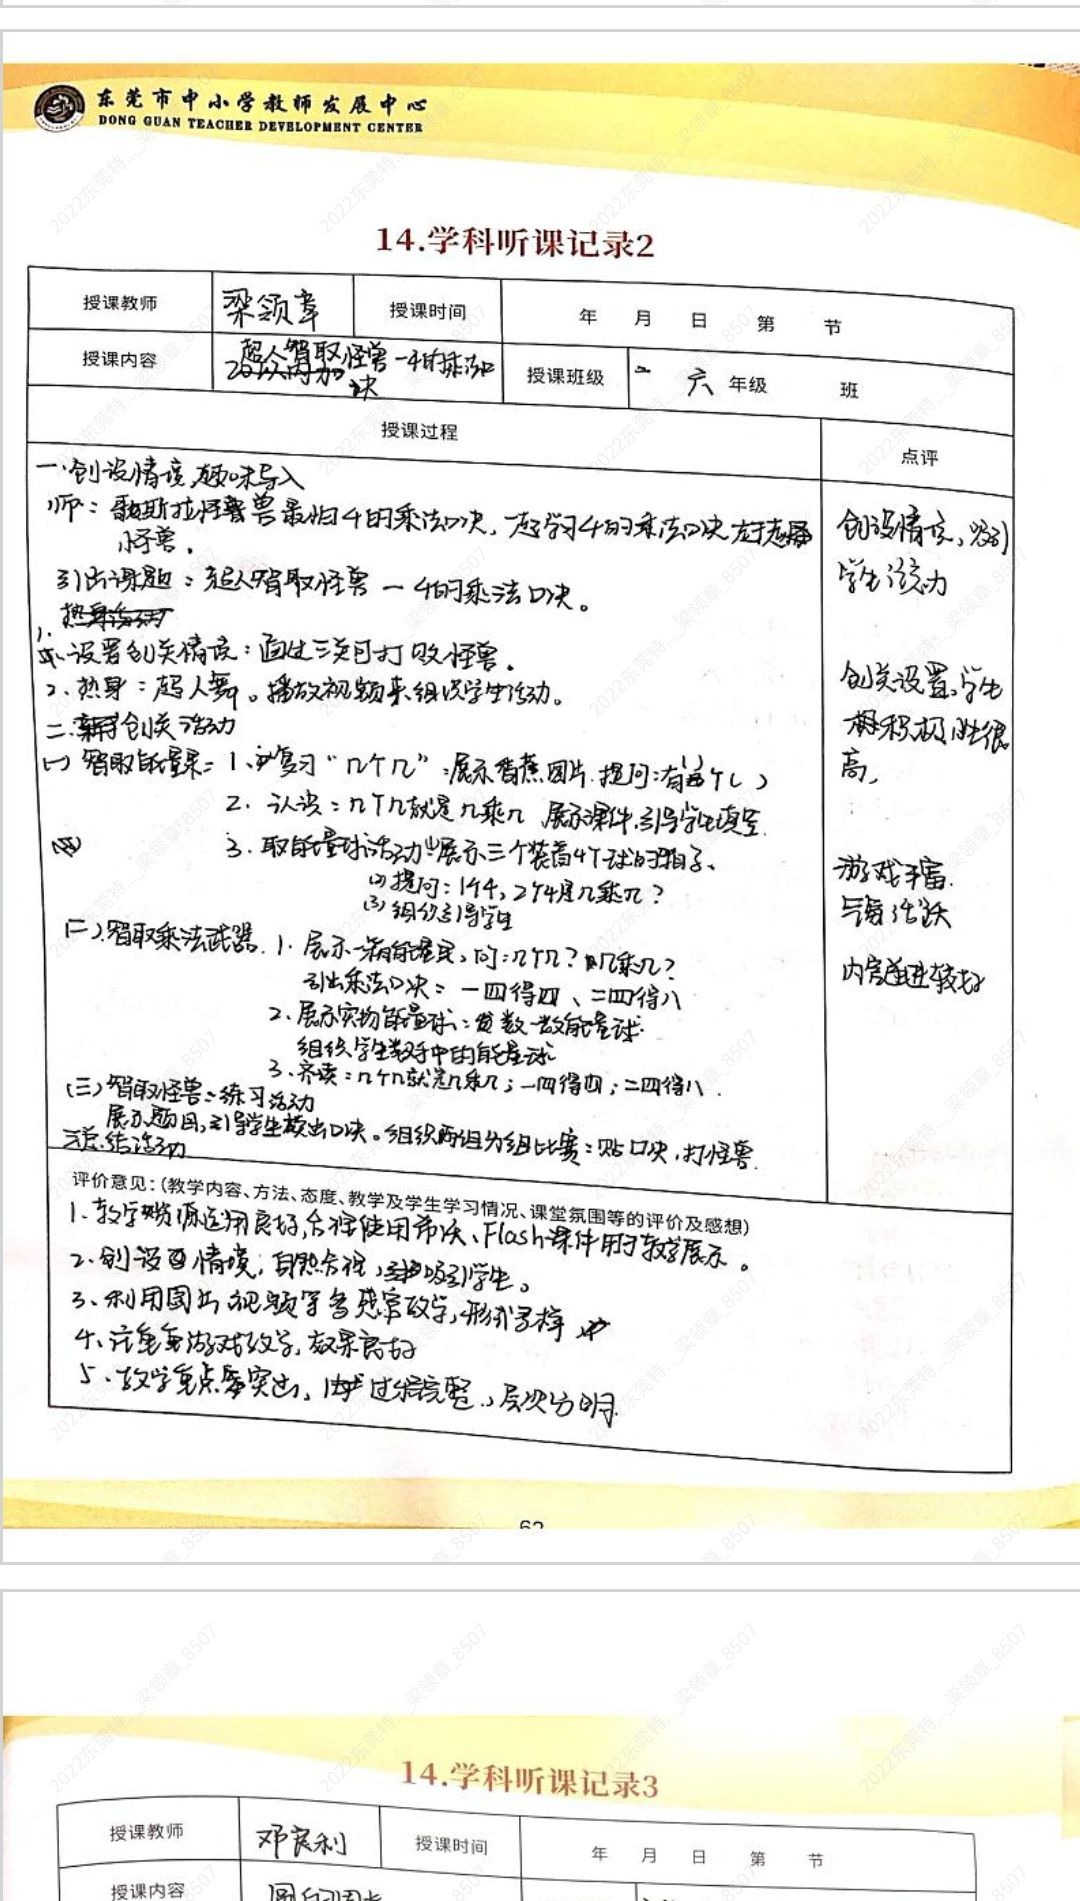 东莞市中小学教师发展中心
DONG GUAN TEACHER DEVELOPMENT CENTER
14.学科听课记录2
授课教师 梁领章 授课时间 年 月 日 第 节
授课内容 超人智取怪兽—4的乘法口诀 授课班级 六 年级 班
授课过程 点评
一.创设情境,趣味导入
师:歌斯拉怪兽最怕4的乘法口诀,一起学习4的乘法口诀
怪兽。
引出课题:超人智取怪兽—4的乘法口诀。
热身活动
1.设置创关情境:通过三关可打败怪兽.
2.热身:超人舞。播放视频来组织学生活动。
二.创关活动
(一)智取能量果:1.复习“几个几”:展示香蕉图片.提问:有 个( )
2.认识:几个几就是几乘几 展示课件,引导学生填空.
3.取能量球活动:(1)展示三个装着4个球的箱子.
(2)提问:1个4,2个4是几乘几?
(3)组织引导学生
(二).智取乘法武器.1.展示 能量果,问:几个几?几乘几?
引出乘法口决:一四得四、二四得八
2.展示实物能量球:数一数能量球
组织学生数手中的能量球
3.齐读:几个几就是几乘几;一四得四;二四得八.
(三)智取怪兽:练习活动
展示题目,引导学生读出口决。组织两组分组比赛:贴口决,打怪兽.
三总结活动
创设情境,吸引
学生注意力
创关设置,学生
积极性很
高,
游戏丰富.
活跃
内容 较好
评价意见:(教学内容、方法、态度、教学及学生学习情况、课堂氛围等的评价及感想)
1.教学资源运用良好,合理使用 、Flash课件用于教学展示。
2.创设 情境,自然合理, 吸引学生。
3.利用图片视频等多感官教学,形式多样
4.注重 游戏教学,效果良好
5.教学重点突出, 过程完整,层次分明.
62
14.学科听课记录3
授课教师 邓良利 授课时间 年 月 日 第 节
授课内容
2022东莞特..._梁领章_8507